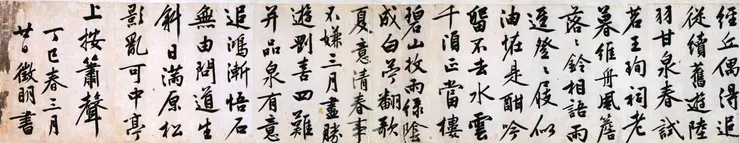 經丘偶得追
從續舊遊陸
羽甘泉春試
茗王珣祠老
暮維舟風簷
落〻鈴相語雨
逕燈〻屐似
油是酣吟
留不去水雲
千頃正當樓
碧山收雨綠陰
成白苧翻歌
夏意清春事
不嫌三月盡勝
遊剛喜四難
并品泉有意
追鴻漸悟石
無由問道生
斜日滿原松
影亂可中亭
上按簫聲
丁巳春三月
廿日徵明書